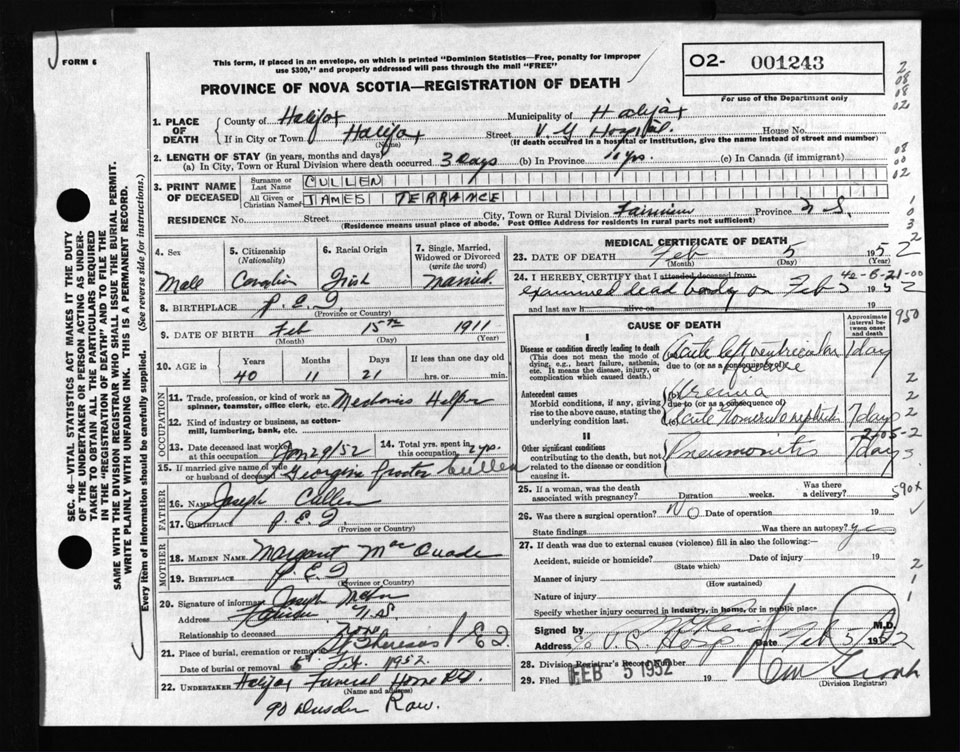 FORM 6
This form, if placed in an envelope, on which is printed "Dominion Statistics—Free, penalty for improper
use $300," and properly addressed will pass through the mail "FREE"
O2- 001243
For use of the Department only
PROVINCE OF NOVA SCOTIA—REGISTRATION OF DEATH
1. PLACE OF DEATH
County of Halifax Municipality of Halifax
If in City or Town Halifax (Name) Street V. G. Hospital. House No.
(If death occurred in a hospital or institution, give the name instead of street and number)
2. LENGTH OF STAY (in years, months and days)
(a) In City, Town or Rural Division where death occurred 3 Days (b) In Province yrs. (c) In Canada (if immigrant)
3. PRINT NAME OF DECEASED
Surname or Last Name CULLEN
All Given or Christian Names JAMES TERRANCE
RESIDENCE No. Street City, Town or Rural Division Fairview Province N. S.
(Residence means usual place of abode. Post Office Address for residents in rural parts not sufficient)
SEC. 46—VITAL STATISTICS ACT MAKES IT THE DUTY
OF THE UNDERTAKER OR PERSON ACTING AS UNDER-
TAKER TO OBTAIN ALL THE PARTICULARS REQUIRED
IN THE "REGISTRATION OF DEATH" AND TO FILE THE
SAME WITH THE DIVISION REGISTRAR WHO SHALL ISSUE THE BURIAL PERMIT.
WRITE PLAINLY WITH UNFADING INK. THIS IS A PERMANENT RECORD.
Every item of information should be carefully supplied. (See reverse side for instructions.)
4. Sex Male
5. Citizenship (Nationality) Canadian
6. Racial Origin Irish
7. Single, Married, Widowed or Divorced (write the word) Married.
8. BIRTHPLACE P. E. I
(Province or Country)
9. DATE OF BIRTH Feb 15th 1911
(Month) (Day) (Year)
10. AGE in Years 40 Months 11 Days 21
If less than one day old
hrs. or min.
OCCUPATION
11. Trade, profession, or kind of work as
spinner, teamster, office clerk, etc. Mechanics Helper
12. Kind of industry or business, as cotton-
mill, lumbering, bank, etc.
13. Date deceased last worked
at this occupation Jan 29/52
14. Total yrs. spent in
this occupation 2 yrs.
15. If married give name of wife
or husband of deceased Georgina Cullen
FATHER
16. NAME Joseph Cullen
17. Birthplace P. E. I
(Province or Country)
MOTHER
18. MAIDEN NAME Margaret MacQuade
19. BIRTHPLACE P. E. I
(Province or Country)
20. Signature of informant Joseph
Address N.S.
Relationship to deceased None
21. Place of burial, cremation or removal St Theresas P. E. I.
Date of burial or removal Feb. 1952.
22. UNDERTAKER Halifax Funeral Home
(Name and address)
90 Row.
MEDICAL CERTIFICATE OF DEATH
23. DATE OF DEATH Feb 5 1952
(Month) (Day)
24. I HEREBY CERTIFY that I attended deceased from:
examined dead body on Feb 5 1952
and last saw h alive on 19
CAUSE OF DEATH
Approximate interval between onset and death
I
Disease or condition directly leading to death
(This does not mean the mode of
dying, e.g., heart failure, asthenia,
etc. It means the disease, injury, or
complication which caused death.)
Acute left ventricular failure 1 day
due to (or as a consequence of)
Antecedent causes
Morbid conditions, if any, giving
rise to the above cause, stating the
underlying condition last.
Uremia
due to (or as a consequence of)
Acute Glomerulonephritis 7 days
II
Other significant conditions
contributing to the death, but not
related to the disease or condition
causing it.
Pneumonitis days
25. If a woman, was the death
associated with pregnancy? Duration weeks. Was there a delivery?
26. Was there a surgical operation? No Date of operation 19
State findings Was there an autopsy? yes
27. If death was due to external causes (violence) fill in also the following:—
Accident, suicide or homicide? Date of injury 19
(State which)
Manner of injury
(How sustained)
Nature of injury
Specify whether injury occurred in industry, in home, or in public place
Signed by M.D.
Address V. G. Hosp. Date Feb 5/ 1952
28. Division Registrar's Record Number
29. Filed FEB 5 1952 19
(Division Registrar)